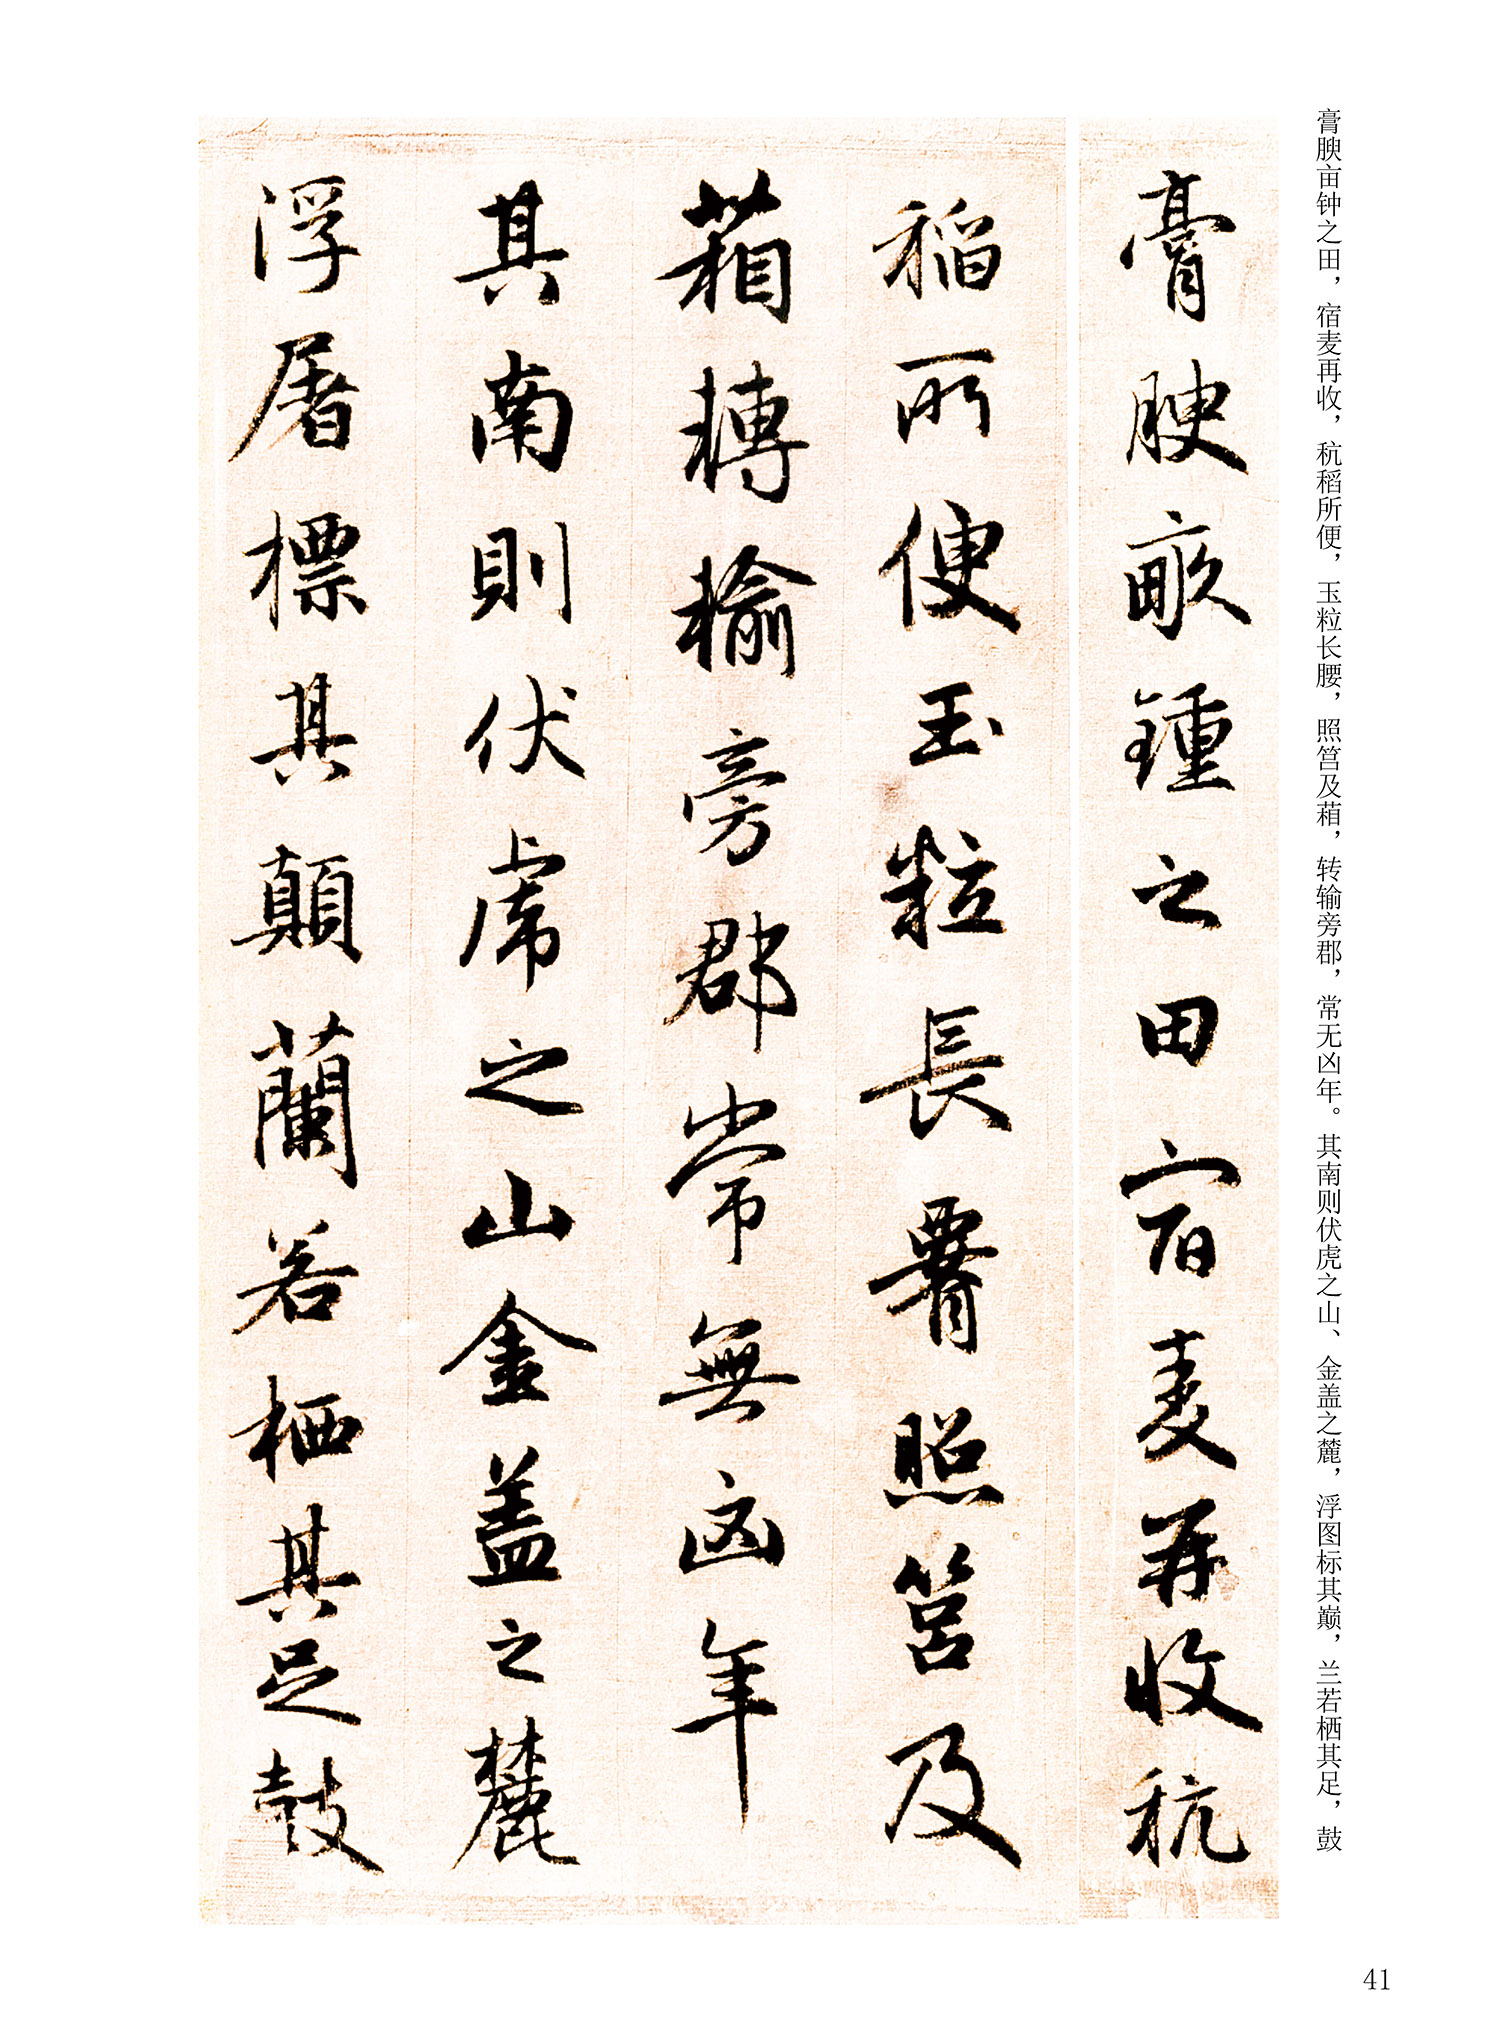 膏腴亩钟之田，宿麦再收，秔稻所便，玉粒长腰，照筥及葙，转输旁郡，常无凶年。其南则伏虎之山、金盖之麓，浮图标其巅，兰若栖其足，鼓
膏腴畝鍾之田宿麦再收秔
稻所便玉粒長䙅照筥及
葙轉輸旁郡常無凶年
其南則伏虎之山金盖之麓
浮屠標其顛蘭若栖其足鼓
41